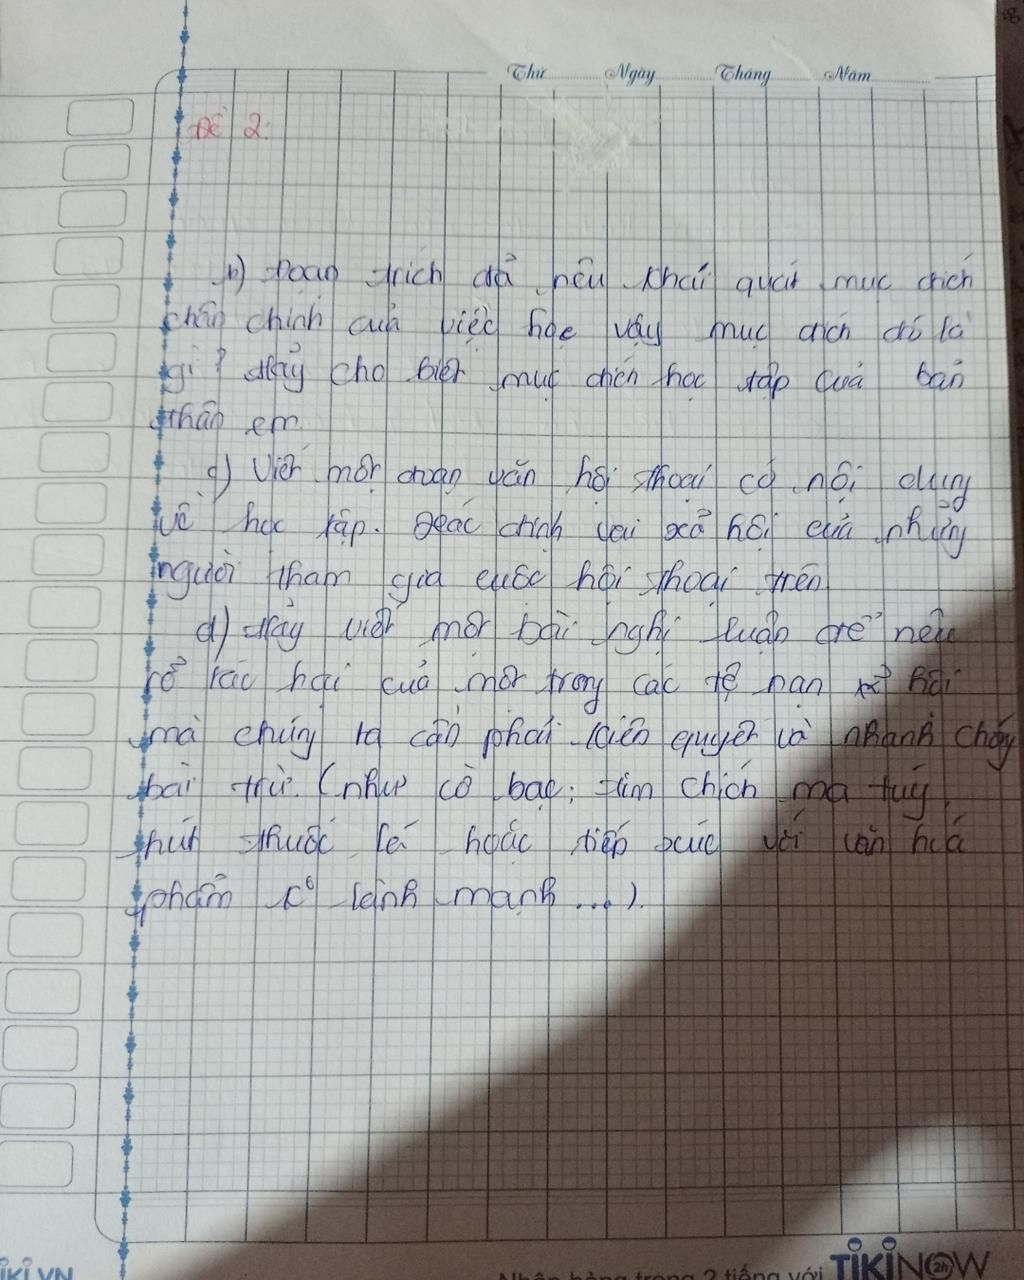 Thứ Ngày Tháng Năm
Đề 2:
b) Đoạn trích đã nêu khái quát mục đích
chân chính của việc học vậy mục đích đó là
gì? Hãy cho biết mục đích học tập của bản
thân em.
c) Viết một đoạn văn hội thoại có nội dung
về học tập. Xác định vai xã hội của những
người tham gia cuộc hội thoại trên.
d) Hãy viết một bài nghị luận để nêu
rõ tác hại của một trong các tệ nạn xã hội
mà chúng ta cần phải kiên quyết và nhanh chóng
bài trừ. (như cờ bạc; tiêm chích ma túy,
hút thuốc lá hoặc tiếp xúc với văn hóa
phẩm k° lành mạnh...).
TIKI.VN
trong 2 tiếng với TIKINOW 2h